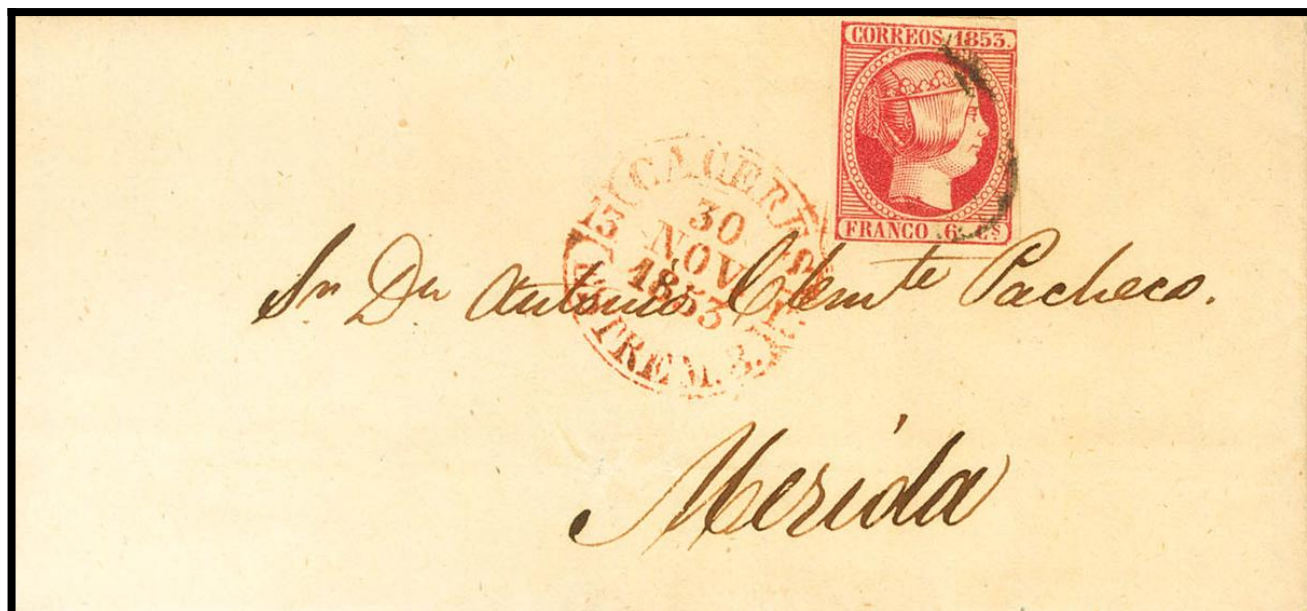 CORREOS 1853.
FRANCO 6 Cs
CACERES
30
NOV
1853
Sr. Dn Antonio Clemte Pacheco.
Merida